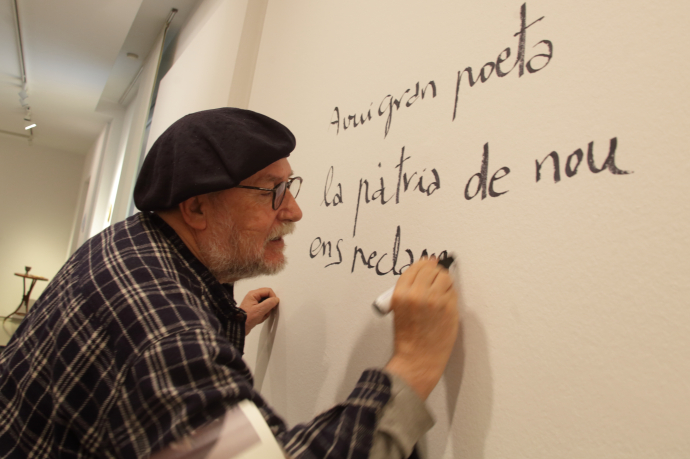 Avui gran poeta
la pàtria de nou
ens reclam